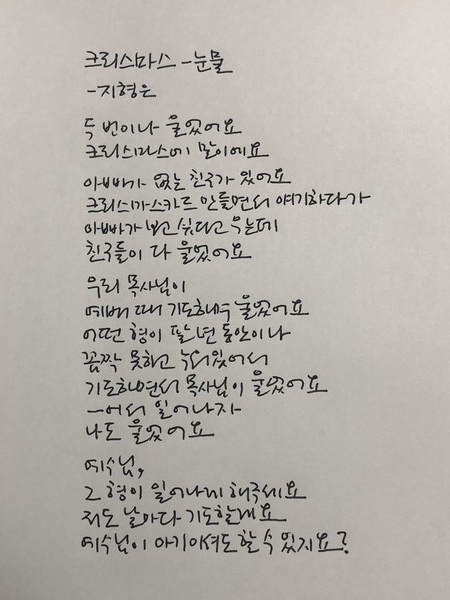 크리스마스 - 눈물
- 지형은
두 번이나 울었어요
크리스마스에 말이에요
아빠가 없는 친구가 있어요
크리스마스카드 만들면서 얘기하다가
아빠가 보고 싶다고 우는데
친구들이 다 울었어요
우리 목사님이
예배 때 기도하며 울었어요
어떤 형이 팔 년 동안이나
꼼짝 못하고 누워있어서
기도하면서 목사님이 울었어요
-어서 일어나자
나도 울었어요
예수님,
그 형이 일어나게 해주세요
저도 날마다 기도할게요
예수님이 아기이셔도 할 수 있지요?